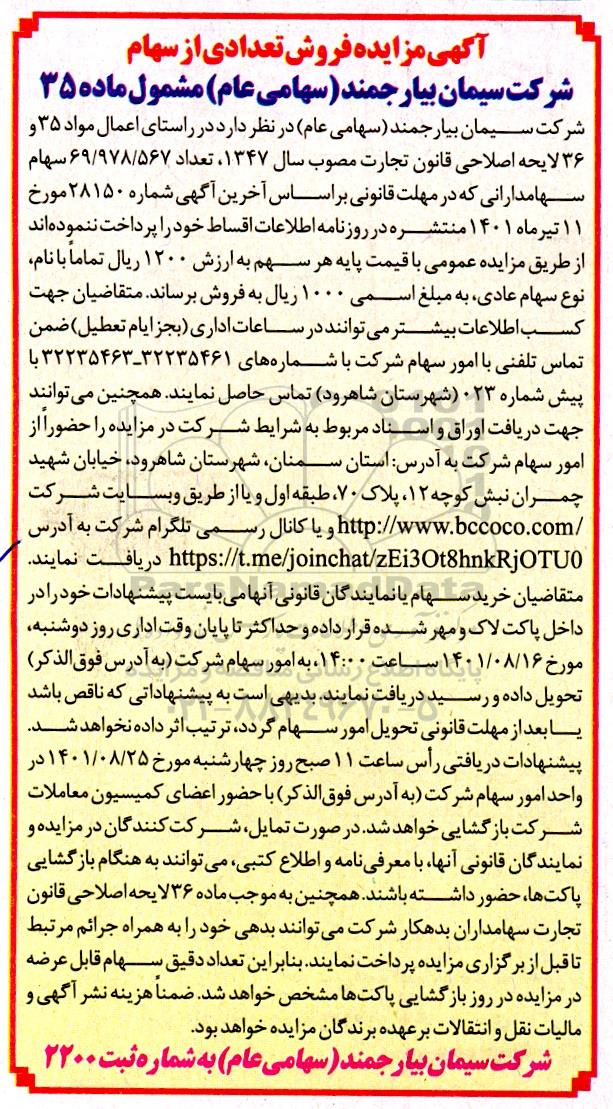 آگهی مزایده فروش تعدادی از سهام
شرکت سیمان بیارجمند (سهامی عام) مشمول ماده ۳۵
شرکت سیمان بیارجمند (سهامی عام) در نظر دارد در راستای اعمال مواد ۳۵ و
۳۶ لایحه اصلاحی قانون تجارت مصوب سال ۱۳۴۷، تعداد ۶۹/۹۷۸/۵۶۷ سهام
سهامدارانی که در مهلت قانونی بر اساس آخرین آگهی شماره ۲۸۱۵۰ مورخ
۱۱ تیرماه ۱۴۰۱ منتشره در روزنامه اطلاعات اقساط خود را پرداخت ننموده‌اند
از طریق مزایده عمومی با قیمت پایه هر سهم به ارزش ۱۲۰۰ ریال تماماً با نام،
نوع سهام عادی، به مبلغ اسمی ۱۰۰۰ ریال به فروش برساند. متقاضیان جهت
کسب اطلاعات بیشتر می توانند در ساعات اداری (بجز ایام تعطیل) ضمن
تماس تلفنی با امور سهام شرکت با شماره‌های ۳۲۲۳۵۴۶۱ـ۳۲۲۳۵۴۶۳ با
پیش شماره ۰۲۳ (شهرستان شاهرود) تماس حاصل نمایند. همچنین می توانند
جهت دریافت اوراق و اسناد مربوط به شرایط شرکت در مزایده را حضوراً از
امور سهام شرکت به آدرس: استان سمنان، شهرستان شاهرود، خیابان شهید
چمران نبش کوچه ۱۲، پلاک ۷۰، طبقه اول و یا از طریق وبسایت شرکت
http://www.bccoco.com/ و یا کانال رسمی تلگرام شرکت به آدرس
https://t.me/joinchat/zEi3Ot8hnkRjOTU0 دریافت نمایند.
متقاضیان خرید سهام یا نمایندگان قانونی آنها می بایست پیشنهادات خود را در
داخل پاکت لاک و مهر شده قرار داده و حداکثر تا پایان وقت اداری روز دوشنبه،
مورخ ۱۴۰۱/۰۸/۱۶ ساعت ۱۴:۰۰، به امور سهام شرکت (به آدرس فوق‌الذکر)
تحویل داده و رسید دریافت نمایند. بدیهی است به پیشنهاداتی که ناقص باشد
یا بعد از مهلت قانونی تحویل امور سهام گردد، ترتیب اثر داده نخواهد شد.
پیشنهادات دریافتی رأس ساعت ۱۱ صبح روز چهارشنبه مورخ ۱۴۰۱/۰۸/۲۵ در
واحد امور سهام شرکت (به آدرس فوق‌الذکر) با حضور اعضای کمیسیون معاملات
شرکت بازگشایی خواهد شد. در صورت تمایل، شرکت کنندگان در مزایده و
نمایندگان قانونی آنها، با معرفی نامه و اطلاع کتبی، می توانند به هنگام بازگشایی
پاکت‌ها، حضور داشته باشند. همچنین به موجب ماده ۳۶ لایحه اصلاحی قانون
تجارت سهامداران بدهکار شرکت می توانند بدهی خود را به همراه جرائم مرتبط
تا قبل از برگزاری مزایده پرداخت نمایند. بنابراین تعداد دقیق سهام قابل عرضه
در مزایده در روز بازگشایی پاکت‌ها مشخص خواهد شد. ضمناً هزینه نشر آگهی و
مالیات نقل و انتقالات بر عهده برندگان مزایده خواهد بود.
شرکت سیمان بیارجمند (سهامی عام) به شماره ثبت ۲۲۰۰
ParsNamadData
پایگاه اطلاع رسانی مناقصه و مزایده
۰۲۱-۸۸۳۴۹۶۷۰-۵